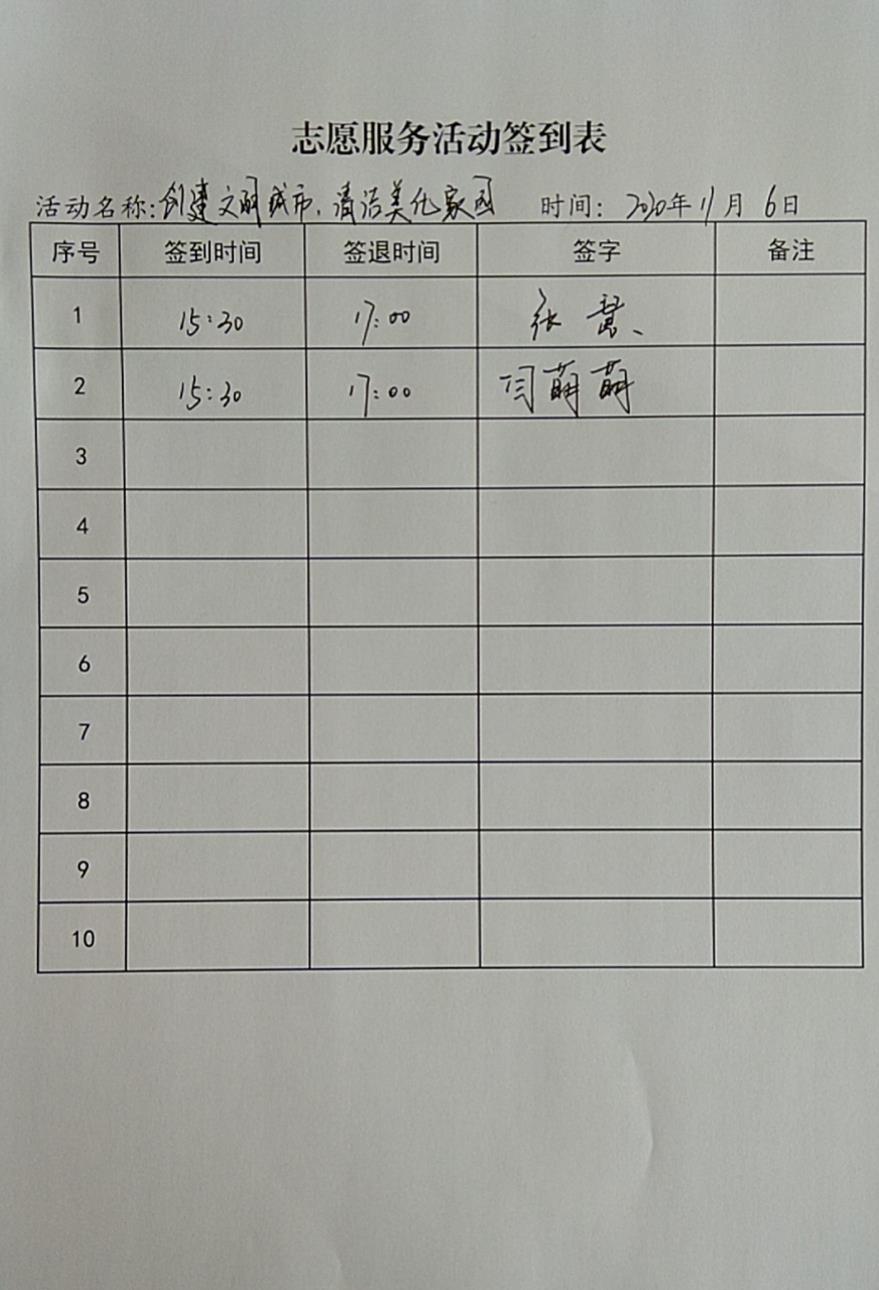 志愿服务活动签到表
活动名称:创建文明城市,清洁美化家园 时间: 2020年11月6日
序号 签到时间 签退时间 签字 备注
1 15:30 17:00 张慧
2 15:30 17:00 闫萌萌
3
4
5
6
7
8
9
10